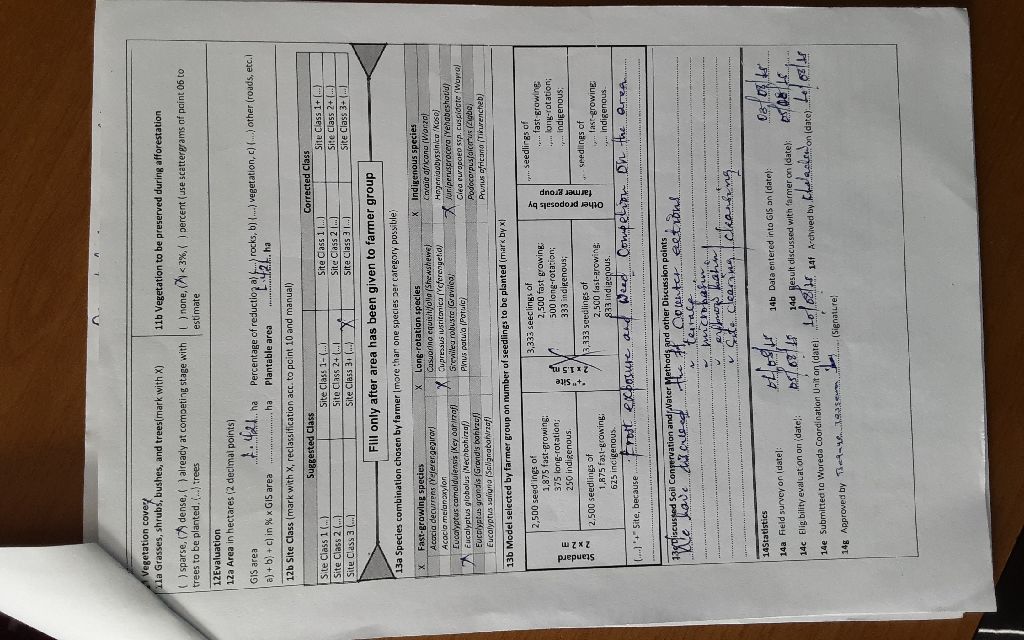 Vegetation cover
11a Grasses, shrubs, bushes, and trees(mark with X)
( ) sparse, (X) dense, ( ) already at competing stage with
trees to be planted, (...) trees
11b Vegetation to be preserved during afforestation
( ) none, (X) < 3%, ( ) percent (use scattergrams of point 06 to
estimate
12Evaluation
12a Area in hectares (2 decimal points)
GIS area ha
Percentage of reduction a) (...) rocks, b) (...) vegetation, c) (...) other (roads, etc.)
a) + b) + c) in % x GIS area ha
Plantable area ha
12b Site Class (mark with X, reclassification acc. to point 10 and manual)
Suggested Class
Corrected Class
Site Class 1 (...)
Site Class 1- (...)
Site Class 1 (...)
Site Class 1+ (...)
Site Class 2 (...)
Site Class 2+ (...)
Site Class 2 (...)
Site Class 2+ (...)
Site Class 3 (...)
Site Class 3+ (...) X
Site Class 3 (...)
Site Class 3+ (...)
Fill only after area has been given to farmer group
13a Species combination chosen by farmer (more than one species per category possible)
X Fast-growing species
X Long-rotation species
X Indigenous species
Acacia decurrens
Casuarina equisitifolia (Shewshewe)
Cordia africana (Wanza)
Acacia melanoxylon
X Cupressus lusitanica (Yeferengetid)
Hagenia abyssinica (Koso)
Eucalyptus camaldulensis
Grevillea robusta (Gravilea)
X Juniperus procera (Yehabeshatid)
X Eucalyptus globulus (Nechbahirzaf)
Pinus patula (Patula)
Olea europaea ssp. cuspidata (Weyra)
Eucalyptus grandis (Grandis bahirzaf)
Podocarpus falcatus (Zigba)
Eucalyptus saligna (Salignabahirzaf)
Prunus africana (Tikurencheb)
13b Model selected by farmer group on number of seedlings to be planted (mark by x)
Standard
2 x 2 m
2,500 seedlings of
1,875 fast-growing;
375 long-rotation;
250 indigenous.
2,500 seedlings of
1,875 fast-growing;
625 indigenous.
"+" Site
2 x 1.5 m
3,333 seedlings of
2,500 fast growing;
500 long-rotation;
333 indigenous;
3,333 seedlings of
2,500 fast-growing;
833 indigenous.
Other proposals by
farmer group
.... seedlings of
.... fast-growing;
.... long-rotation;
.... indigenous;
.... seedlings of
.... fast-growing;
.... indigenous.
(...) "+" Site, because frost exposure and weed Competion on the area
Discussed Soil Conservation and Water Methods and other Discussion points
We have discussed the ff Counter actions
terrace
microbasin
Site clearing cleaning
14Statistics
14a Field survey on (date):
14b Data entered into GIS on (date): 03/08/
14c Eligibility evaluation on (date): 05/08/
14d Result discussed with farmer on (date):
14e Submitted to Woreda Coordination Unit on (date): 10/08/
14f Archived by on (date)
14g Approved by (Signature)